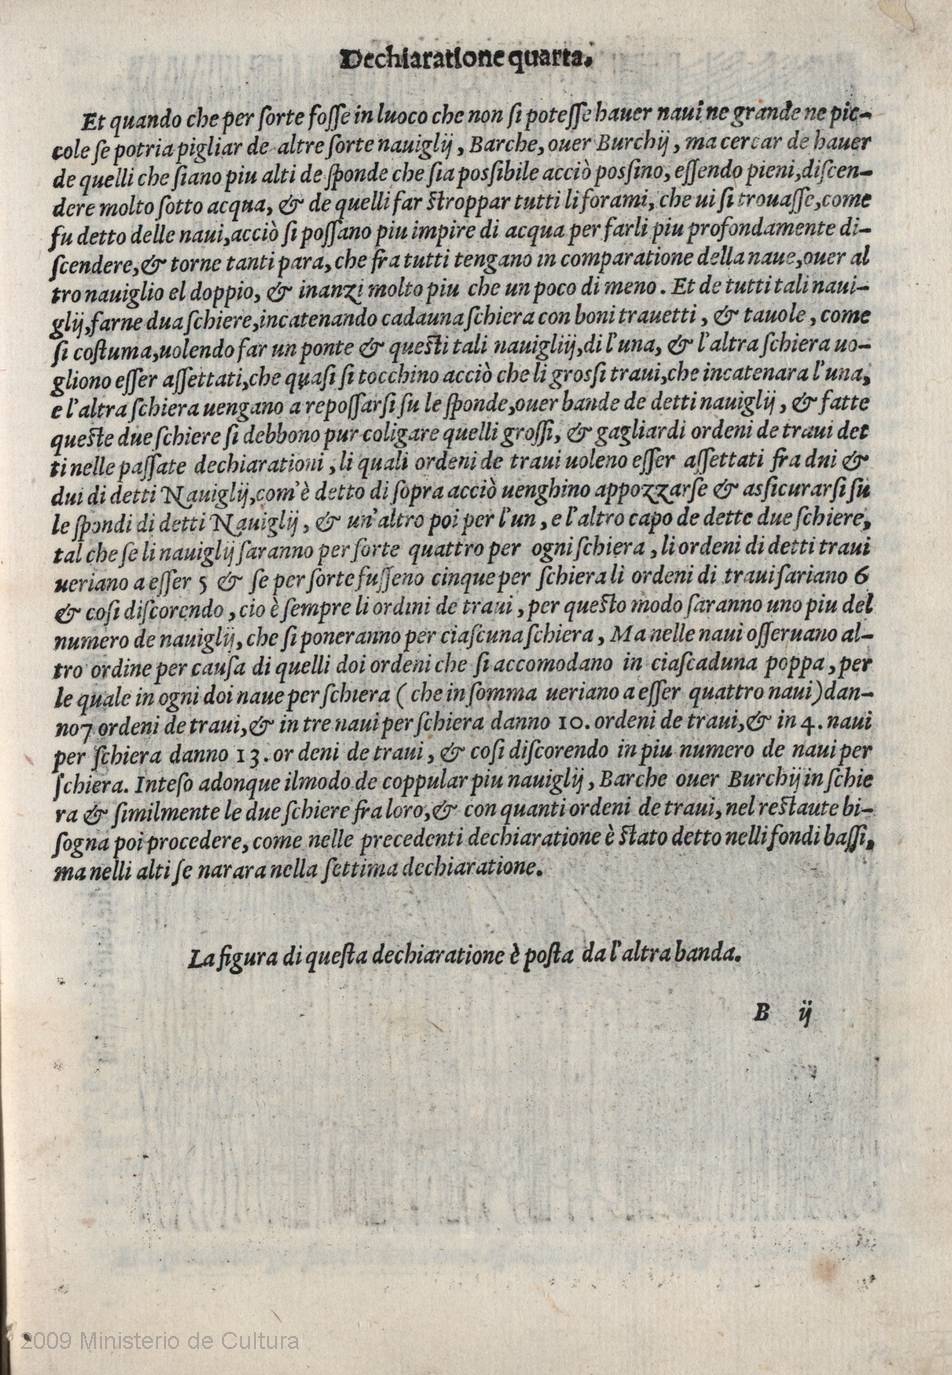 Dechiaratione quarta.
Et quando che per ſorte foſſe in luoco che non ſi poteſſe hauer naui ne grande ne pic-
cole ſe potria pigliar de altre ſorte nauiglij, Barche, ouer Burchij, ma cercar de hauer
de quelli che ſiano piu alti de ſponde che ſia poſsibile acciò poſsino, eſſendo pieni, diſcen-
dere molto ſotto acqua, & de quelli far ſtroppar tutti li forami, che ui ſi trouaſſe, come
fu detto delle naui, acciò ſi poſſano piu impire di acqua per farli piu profondamente di-
ſcendere, & torne tanti para, che fra tutti tengano in comparatione della naue, ouer al
tro nauiglio el doppio, & inanzi molto piu che un poco di meno. Et de tutti tali naui-
glij, farne dua ſchiere, incatenando cadauna ſchiera con boni trauetti, & tauole, come
ſi coſtuma, uolendo far un ponte & queſti tali nauigliij, di l'una, & l'altra ſchiera uo-
gliono eſſer aſſettati, che quaſi ſi tocchino acciò che li groſsi traui, che incatenara l'una,
e l'altra ſchiera uengano a repoſſarſi ſu le ſponde, ouer bande de detti nauiglij, & fatte
queſte due ſchiere ſi debbono pur coligare quelli groſſi, & gagliardi ordeni de traui det
ti nelle paſſate dechiarationi, li quali ordeni de traui uoleno eſſer aſſettati fra dui &
dui di detti Nauiglij, com'è detto di ſopra acciò uenghino appozzarſe & aſsicurarſi ſu
le ſpondi di detti Nauiglij, & un'altro poi per l'un, e l'altro capo de dette due ſchiere,
tal che ſe li nauiglij ſaranno per ſorte quattro per ogni ſchiera, li ordeni di detti traui
ueriano a eſſer 5 & ſe per ſorte fuſſeno cinque per ſchiera li ordeni di traui ſariano 6
& coſi diſcorendo, cio è ſempre li ordini de traui, per queſto modo ſaranno uno piu del
numero de nauiglij, che ſi poneranno per ciaſcuna ſchiera, Ma nelle naui oſſeruano al-
tro ordine per cauſa di quelli doi ordeni che ſi accomodano in ciaſcaduna poppa, per
le quale in ogni doi naue per ſchiera ( che in ſomma ueriano a eſſer quattro naui) dan-
no 7 ordeni de traui, & in tre naui per ſchiera danno 10. ordeni de traui, & in 4. naui
per ſchiera danno 13. or deni de traui, & coſi diſcorendo in piu numero de naui per
ſchiera. Inteſo adonque il modo de coppular piu nauiglij, Barche ouer Burchij in ſchie
ra & ſimilmente le due ſchiere fra loro, & con quanti ordeni de traui, nel reſtaute bi-
ſogna poi procedere, come nelle precedenti dechiaratione è ſtato detto nelli fondi baſſi,
ma nelli alti ſe narara nella ſettima dechiaratione.
La figura di queſta dechiaratione è poſta da l'altra banda.
B ij
2009 Ministerio de Cultura